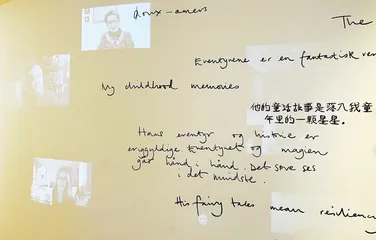 doux-amers
The
Eventyrene er en fantastisk
My childhood memories
他的童话故事是落入我童
年里的一颗星星。
Hans eventyr og historie er
evigyldige Eventyret og magien
går hånd i hånd. Det
i det mindste.
His fairy tales mean resiliency